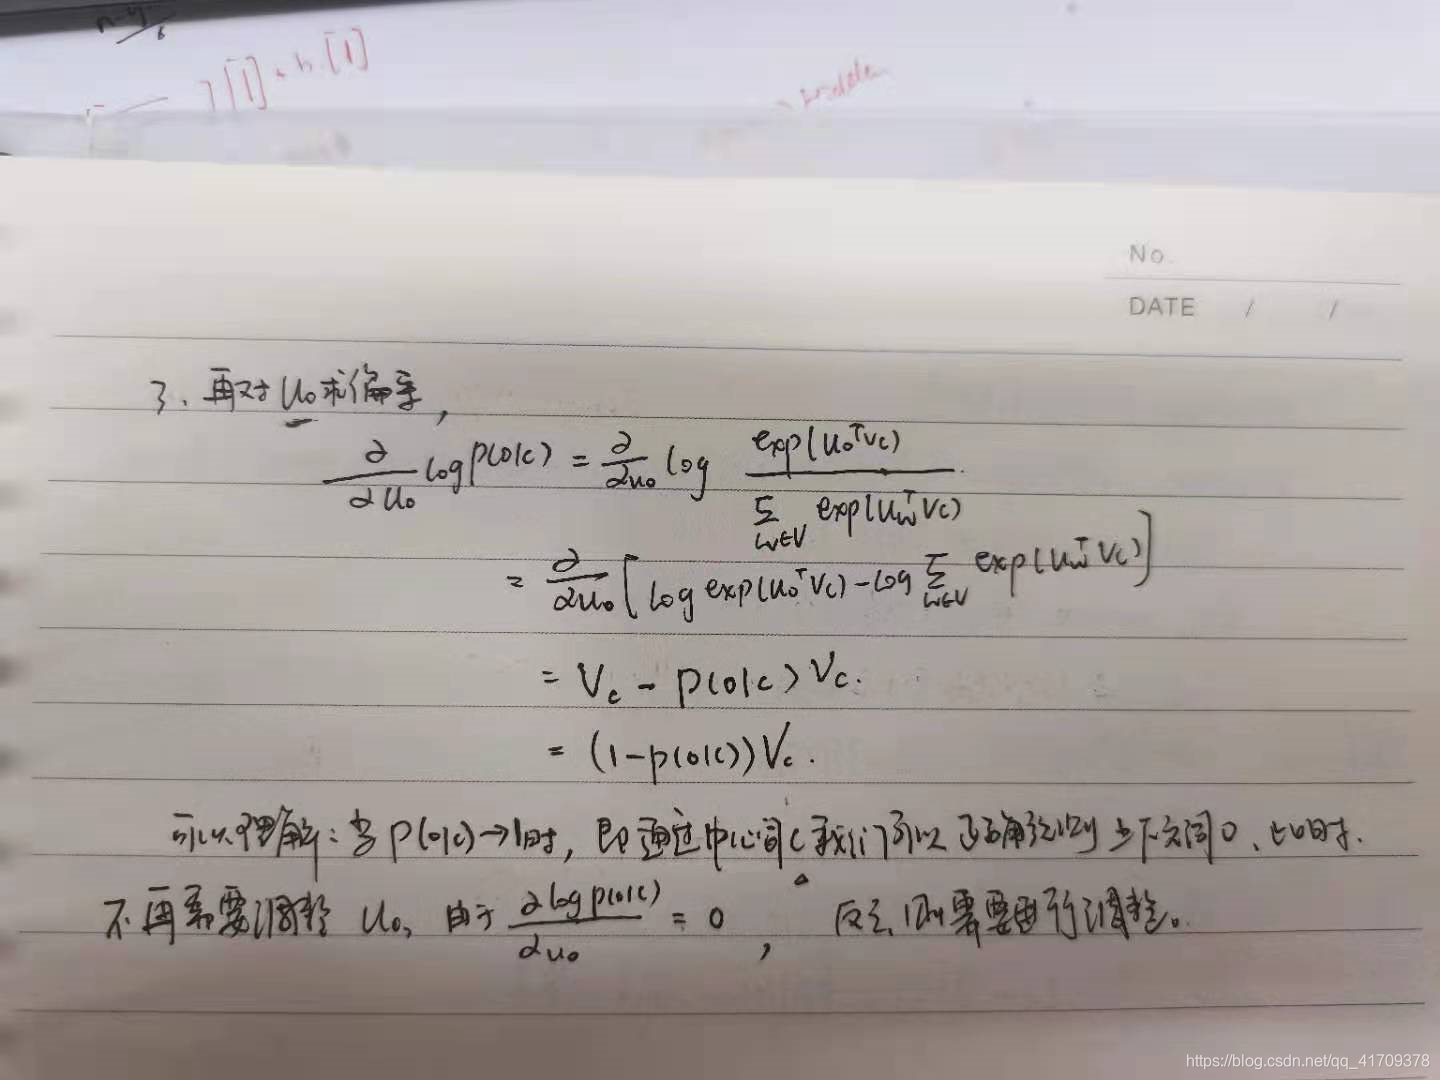 7[1]+b.[1]
No.
DATE / /
3、再对 u₀ 求偏导,
∂/∂u₀ log p(o|c) = ∂/∂u₀ log exp(u₀ᵀv_c) / Σ_{w∈V} exp(u_wᵀv_c)
= ∂/∂u₀ [log exp(u₀ᵀv_c) - log Σ_{w∈V} exp(u_wᵀv_c)]
= V_c - p(o|c) V_c.
= (1-p(o|c)) V_c.
可以理解:当 p(o|c)→1时, 即通过中心词c我们可以正确预测上下文词o、此时.
不再需要调整 u₀, 由于 ∂log p(o|c)/∂u₀ = 0, 反之,则需要进行调整。
https://blog.csdn.net/qq_41709378